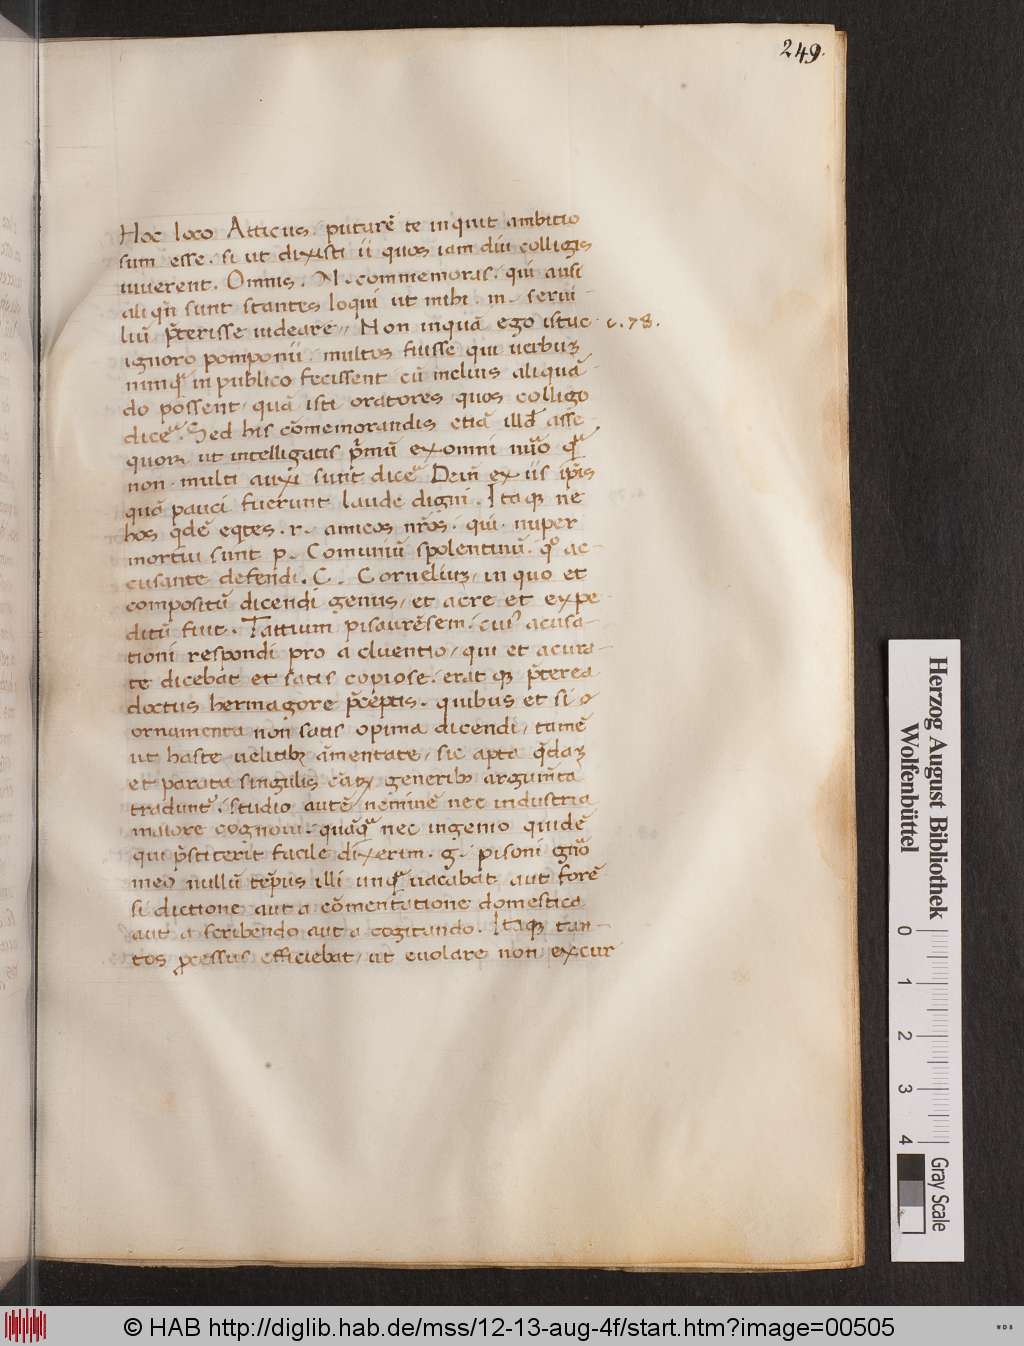 249.
Hoc loco Atticus. putarē te inquit ambitio
sum esse. si ut dixisti ii quos iam diu colligis
uiuerent. Omnis. N. commemoras. qui ausi
aliqn̄ sunt stantes loqui ut mihi. m. serui-
liū p̄terisse uideare,, Non inquā ego istuc c. 78.
ignoro pomponii. multos fuisse qui uerbuꝫ
nunqᵃ in publico fecissent cū melius aliquā-
do possent. quā isti oratores quos colligo
diceᵃ. Sed his cōmemorandis etiā illd̄ asse
quoꝝ ut intelligatis p̄mū ex omni nūo qᵃ
non multi auxi sunt diceᵃ Dein̄ ex iis ip̄is
quā pauci fuerunt laude digni. Itaqꝫ ne
hos qdē eqtes. r. amicos nr̄os. qui nuper
mortui sunt p. Comuniū spolentinū. qᵒ ac-
cusante defendi. C. Corneliuꝫ, in quo et
compositū dicendi genus, et acre et expe-
ditū fuit. Tattium pisaurēsem. cuiꝰ acusa-
tioni respondi pro a cluentio, qui et acura-
te dicebat et satis copiose. erat qꝫ p̄terea
doctus hermagore p̄ceptis. quibus et si o
ornamenta non satis opima dicendi, tamē
ut haste uelitabꝫ āmentate, sic apta q̄daꝫ
et parata singulis cāꝝ generibꝫ argum̄ta
tradunt̄. studio autē neminē nec industria
maiore cognoui. quāqᵃ nec ingenio quidē
qui p̄stiterit facile dixerim. g. pisoni gn̄o
meo nullū tēpus illi unqᵃ uacabat aut forē
si dictione aut a cōmentatione domestica
aut a scribendo aut a cogitando. Itaqꝫ tan-
tos ꝓcessus efficiebat, ut euolare non excur
Herzog August Bibliothek
Wolfenbüttel
0 1 2 3 4
Gray Scale
© HAB http://diglib.hab.de/mss/12-13-aug-4f/start.htm?image=00505